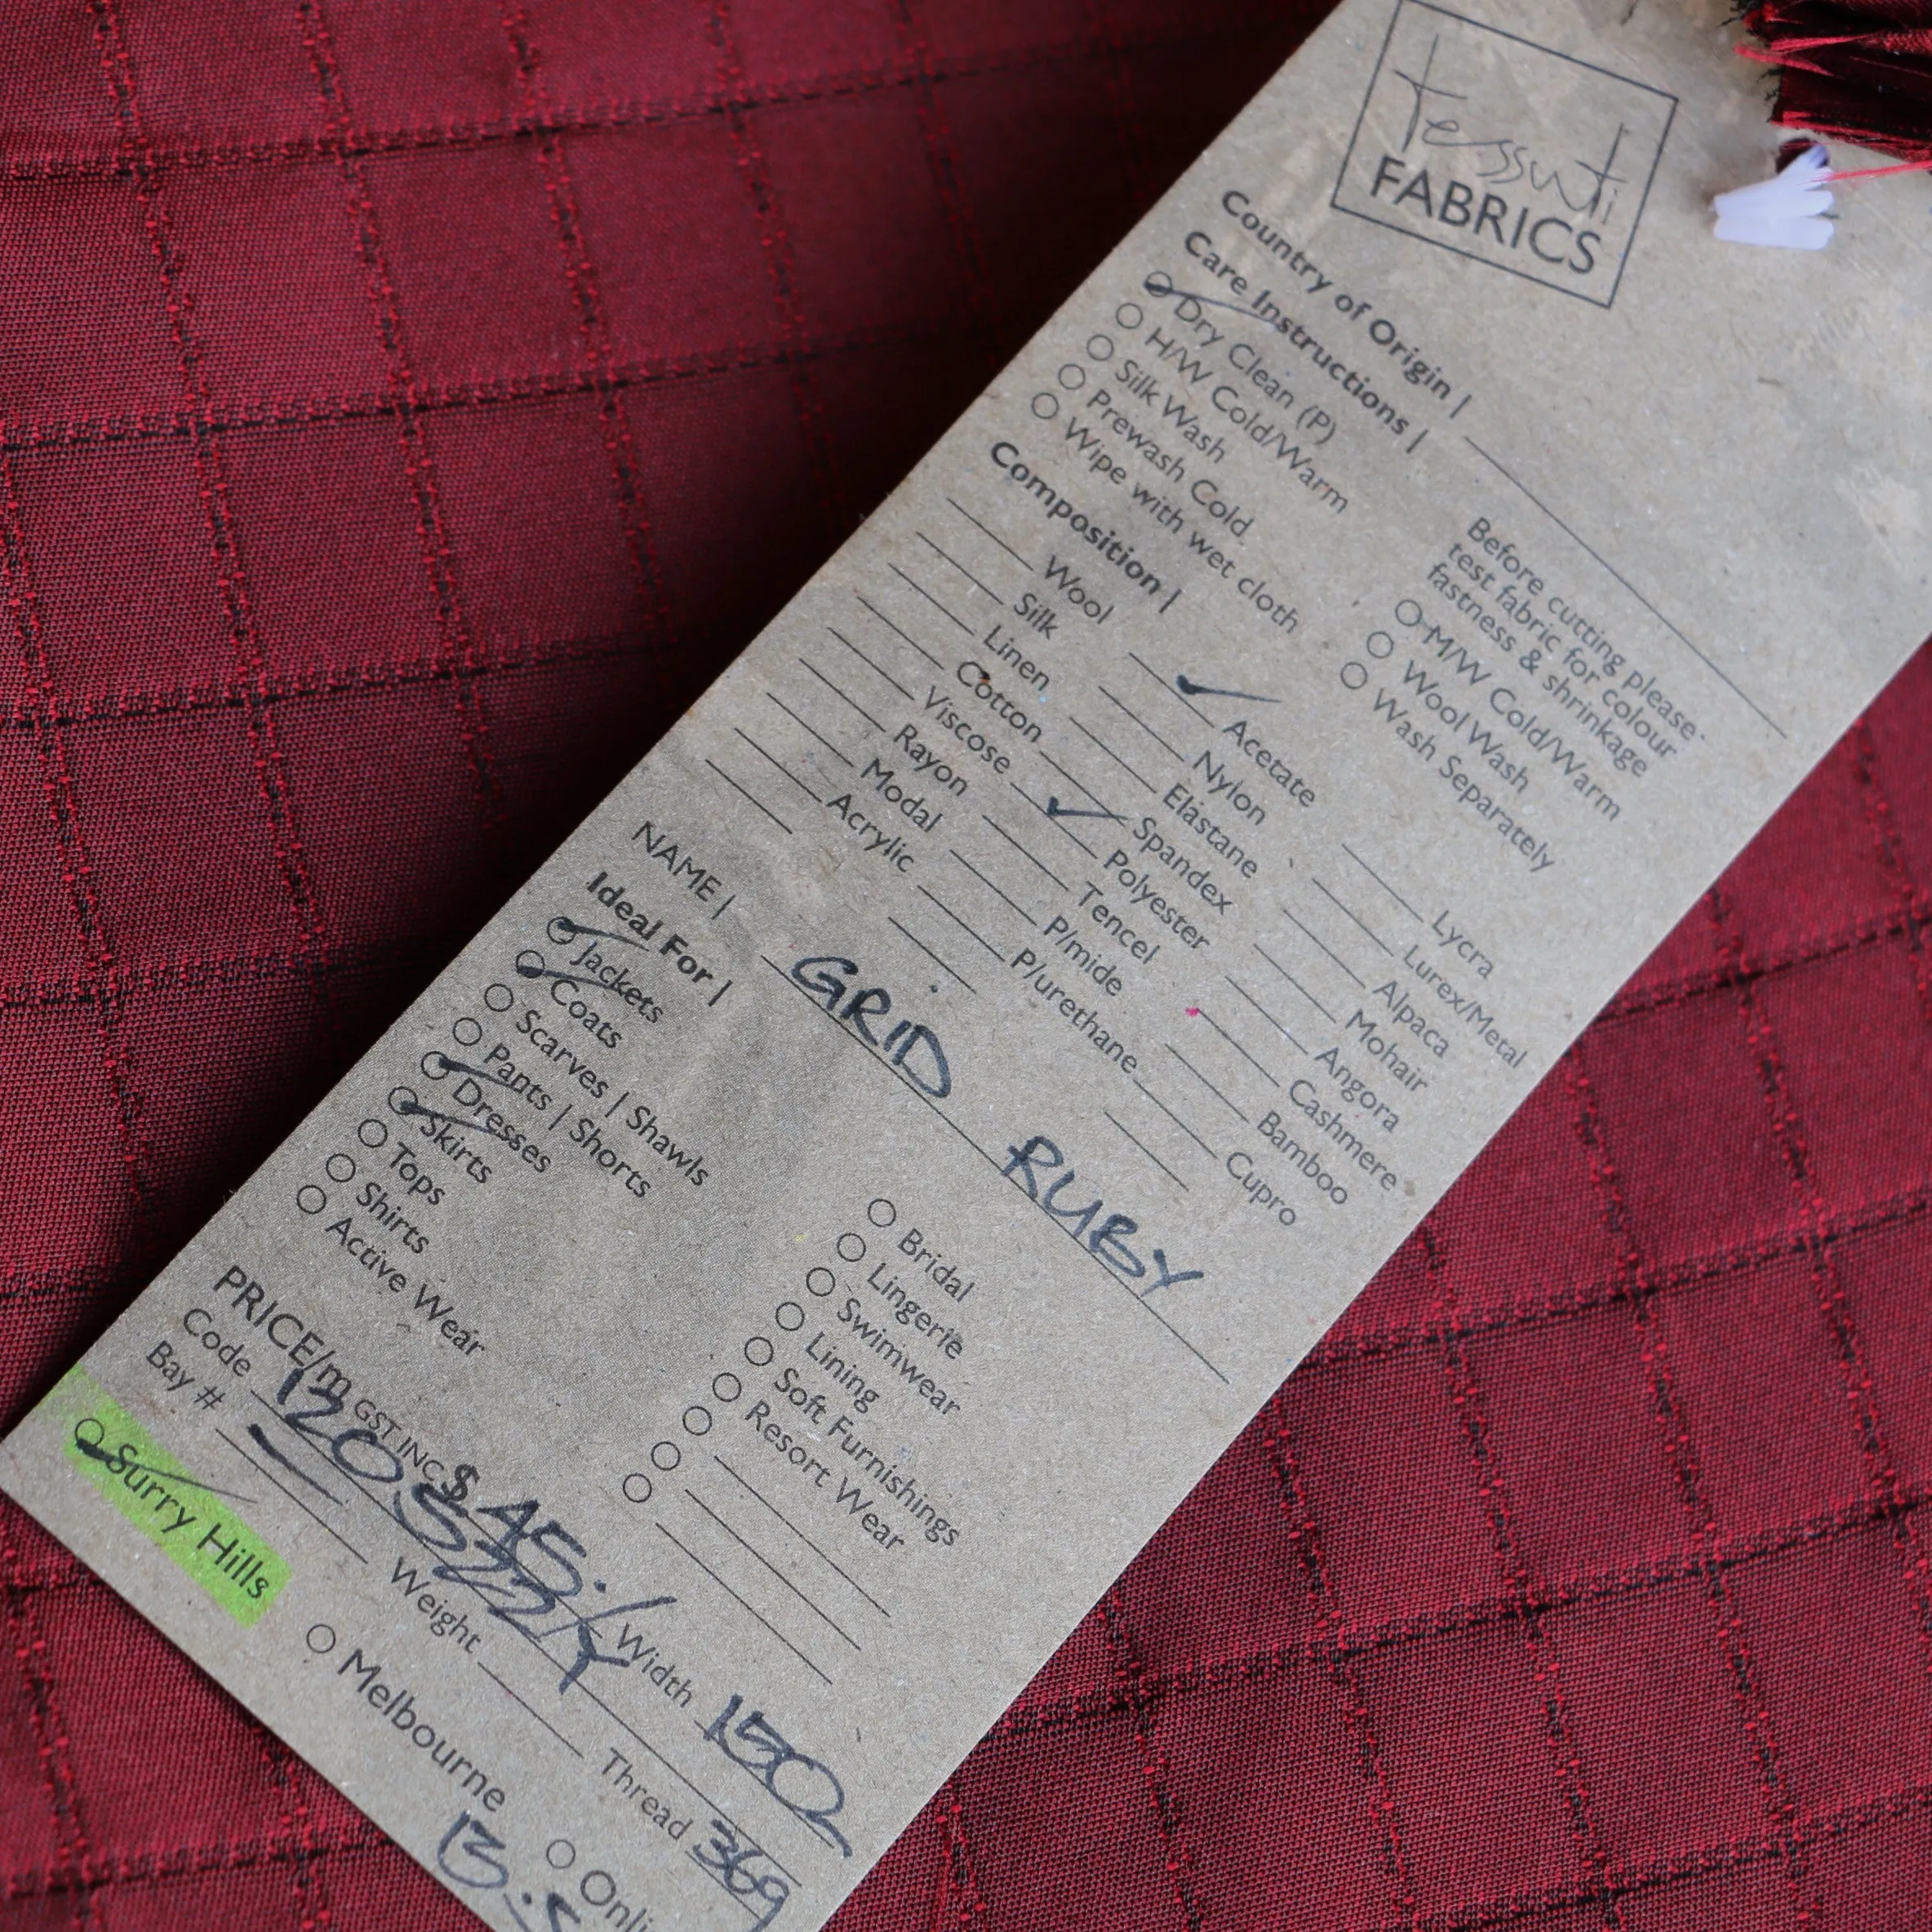 tessuti
FABRICS
Country of Origin |
Care Instructions |
Dry Clean (P)
H/W Cold/Warm
Silk Wash
Prewash Cold
Wipe with wet cloth
Before cutting please
test fabric for colour
fastness & shrinkage
M/W Cold/Warm
Wool Wash
Wash Separately
Composition |
Wool
Silk
Linen
Cotton
Viscose
Rayon
Modal
Acrylic
Acetate
Nylon
Elastane
Spandex
Polyester
Tencel
P/mide
P/urethane
Lycra
Lurex/Metal
Alpaca
Mohair
Angora
Cashmere
Bamboo
Cupro
NAME | GRID RUBY
Ideal For |
Jackets
Coats
Scarves | Shawls
Pants | Shorts
Dresses
Skirts
Tops
Shirts
Active Wear
Bridal
Lingerie
Swimwear
Lining
Soft Furnishings
Resort Wear
PRICE/m GST INC. $ 45. Width 150
Code Thread 369
Bay # Weight
Surry Hills Melbourne Onli